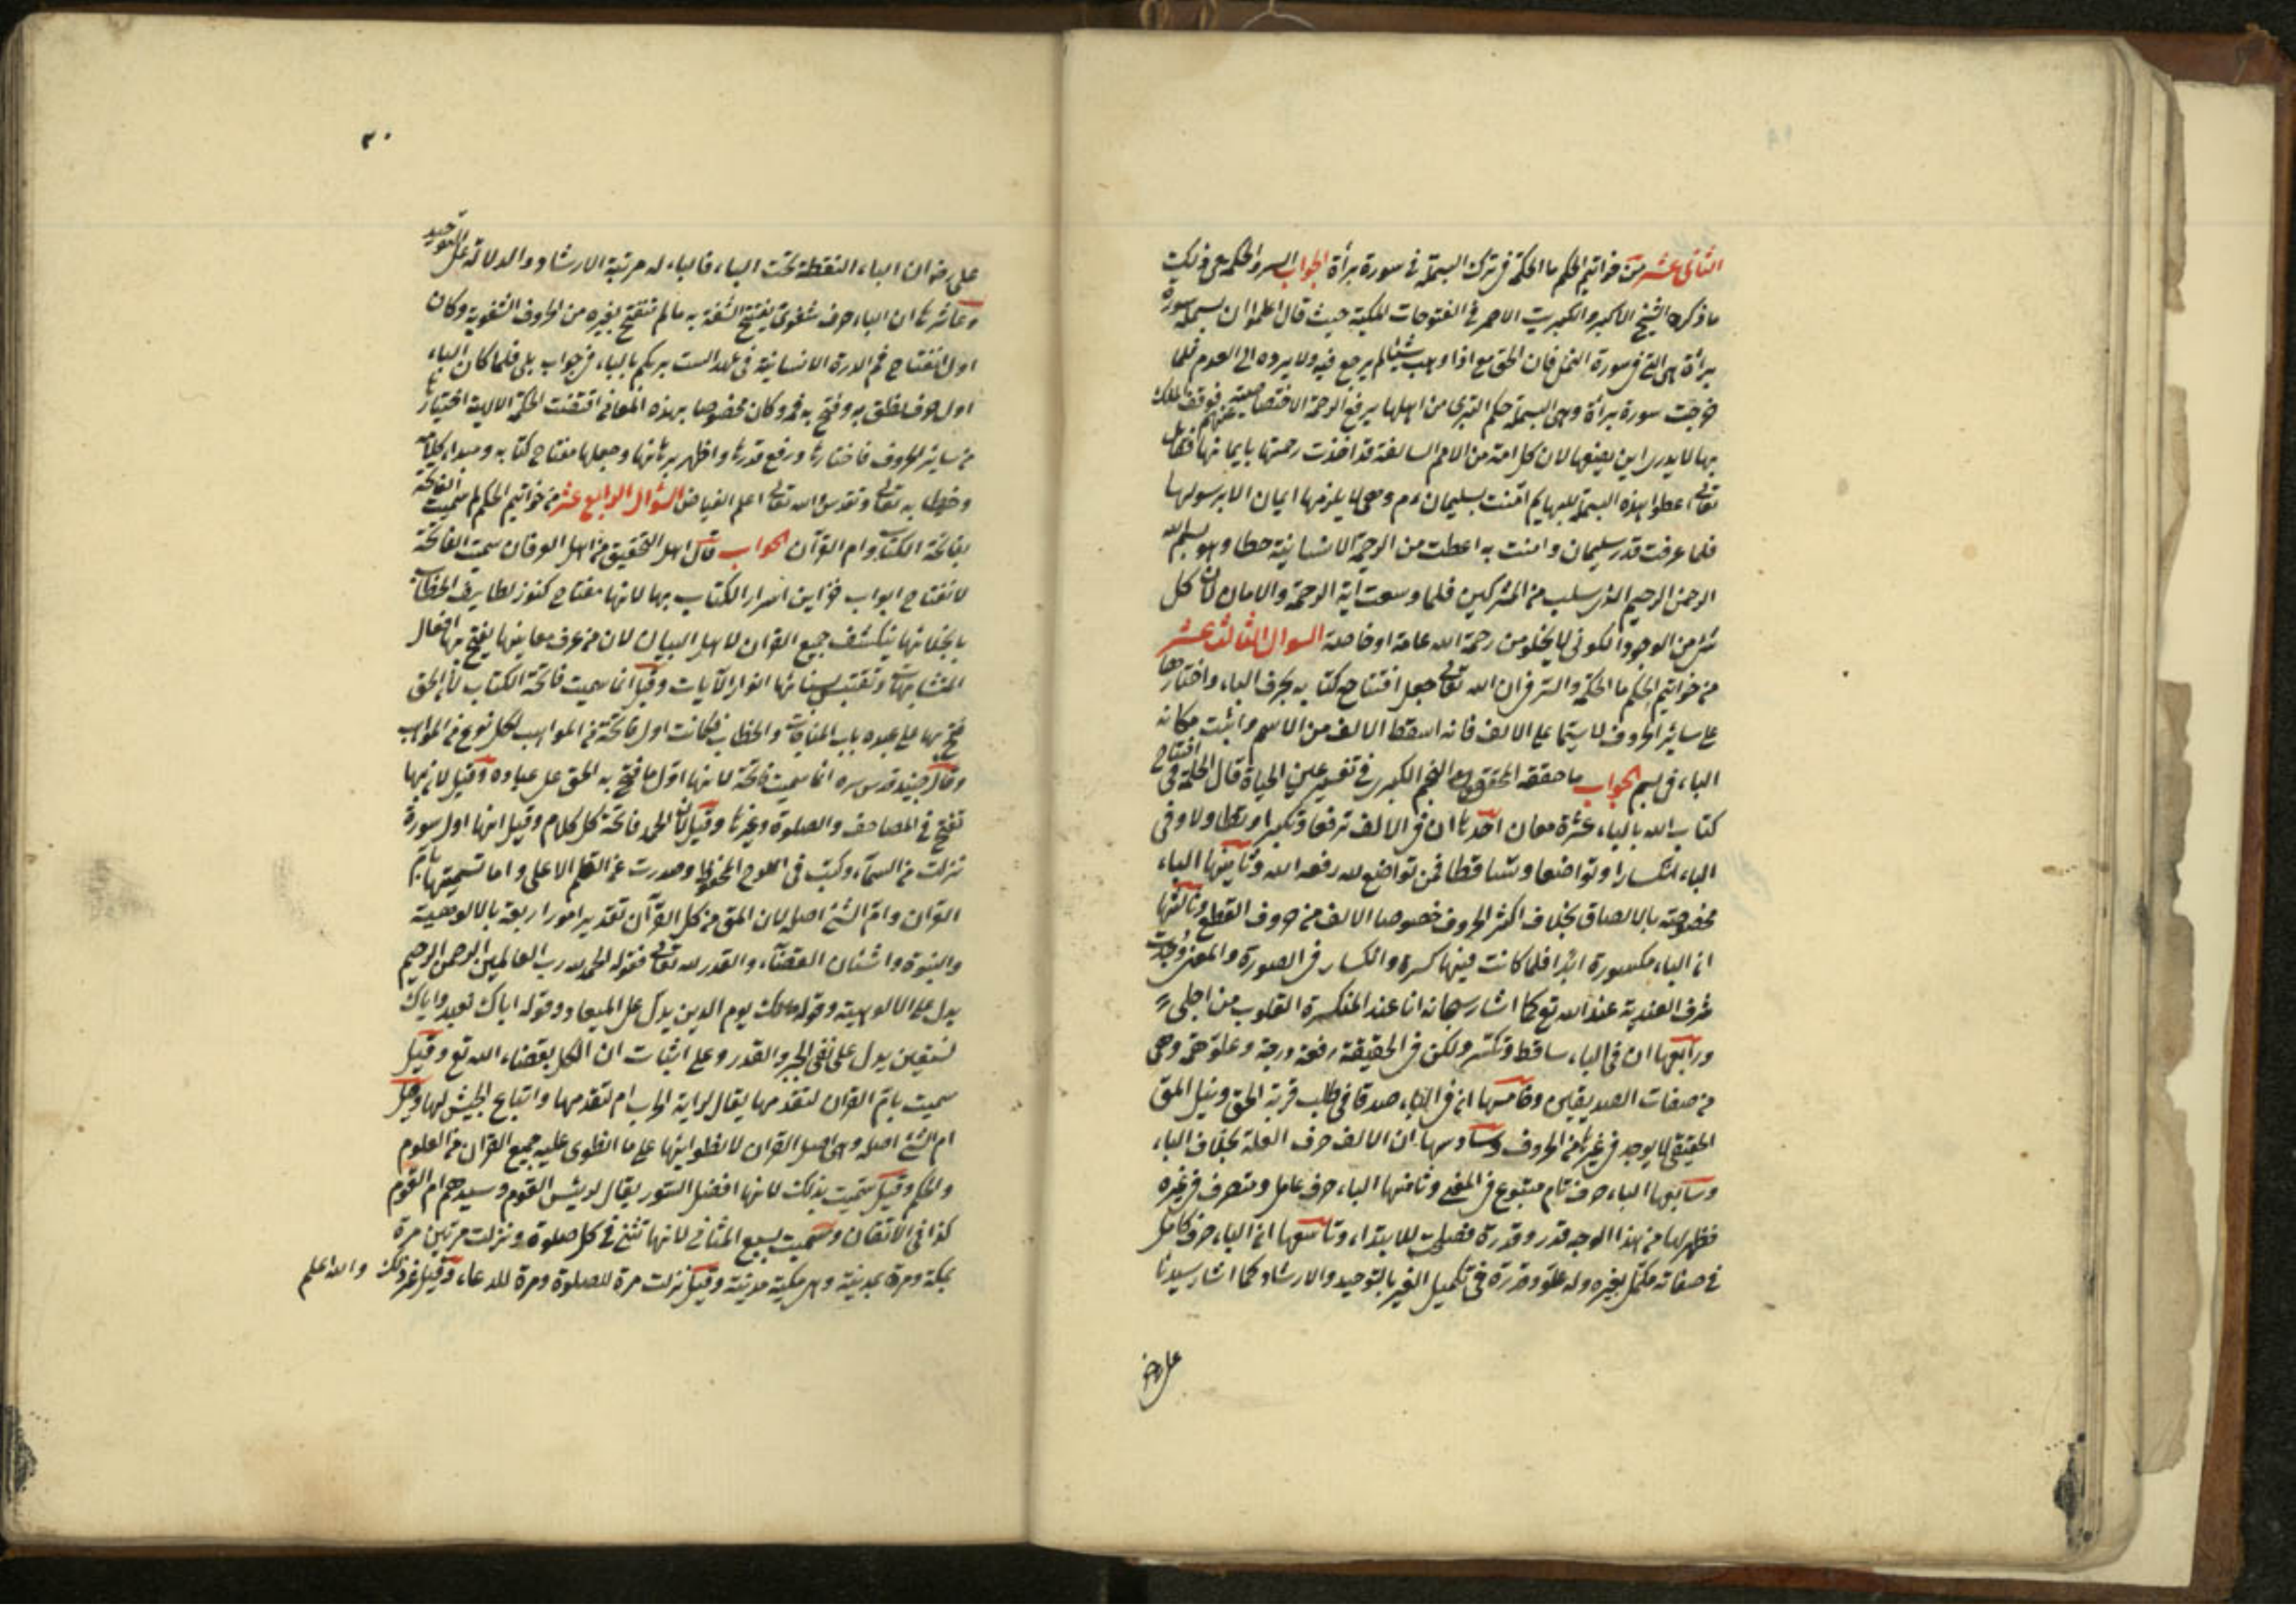 الثانى عشر من خواتيم الحكم ما الحكمة فى ترك البسملة فى سورة برأة الجواب السر والحكمة فى ذلك
ما ذكره الشيخ الاكبر والكبريت الاحمر فى الفتوحات المكية حيث قال اعلموا ان بسملة سورة
برأة هى التى فى سورة النمل فان الحق تع اذا وهب شيئا لم يرجع فيه ولا يرده الى العدم فلما
خرجت سورة برأة وهى البسملة حكم التبرى من اهلها برفع الرحمة الاختصاصية عنهم فوقف الملك
بها لا يدرى اين يضعها لان كل امة من الامم السالفة قد اخذت رحمتها بايمانها فقال
تعالى اعطوا هذه البسملة للبهايم امنت بسليمان عم وهى لا يلزمها ايمان الا برسولها
فلما عرفت قدر سليمان وامنت به اعطت من الرحمة الانسانية حظا وهو بسم الله
الرحمن الرحيم الذى سلب من المشركين فلما وسعت آية الرحمة والامان لان كل
شئ من الوجود الكونى لا يخلو من رحمة الله عامة او خاصة السوال الثالث عشر
من خواتيم الحكم ما الحكمة والسر فى ان الله تعالى جعل افتتاح كتابه بحرف الباء واختارها
على سائر الحروف لا سيما على الالف فانه اسقط الالف من الاسم واثبت مكانه
الباء فى بسم الجواب ما حققه المحقق النجم الكبرى فى تفسير عين الحياة قال الحكمة فى افتتاح
كتاب الله بالباء عشرة معان احدها ان فى الالف ترفعا وتكبرا وتطاولا وفى
الباء انكسارا وتواضعا وتساقطا فمن تواضع لله رفعه الله وثانيها الباء
مخصوصة بالالصاق بخلاف اكثر الحروف خصوصا الالف من حروف القطع وثالثها
ان الباء مكسورة ابدا فلما كانت فيها كسرة وانكسار فى الصورة والمعنى وجدت
شرف العندية عند الله تع كما اشار سبحانه انا عند المنكسرة القلوب من اجلى
ورابعها ان فى الباء ساقط وتكسر ولكن فى الحقيقة رفعة درجة وعلو همة وهى
من صفات الصديقين وخامسها ان فى الباء صدقا فى طلب قربة الحق ونيل الحق
الحقيقى لا يوجد فى غيرها من الحروف وسادسها ان الالف حرف العلة بخلاف الباء
وسابعها الباء حرف تام متبوع فى المعنى وثامنها الباء حرف عامل ومتصرف فى غيره
فظهر لها من هذا الوجه قدر وقدرة فصلحت للابتداء وتاسعها ان الباء حرف كامل
فى صفاته مكمل لغيره وله علو وقدرة فى تكميل الغير بالتوحيد والارشاد كما اشار سيدنا
على رض
٢٠
على رض ان الباء النقطة تحت الباء فالباء له مرتبة الارشاد والدلالة على التوحيد
وعاشرها ان الباء حرف شفوى يفتح الشفة به ما لم تفتح بغيره من الحروف الشفوية وكان
اول انفتاح فم الذرة الانسانية فى عهد الست بربكم بالباء فى جواب بلى فلما كان الباء
اول حرف نطق به وفتح به فمه وكان مخصوصا بهذه المعانى اقتضت الحكمة الالهية اختيارها
من سائر الحروف فاختارها ورفع قدرها واظهر برهانها وجعلها مفتاح كتابه ومبداء كلامه
وخطابه تعالى وتقدس والله تعالى اعلم الفياض السؤال الرابع عشر من خواتيم الحكم لم سميت الفاتحة
بفاتحة الكتاب وام القرآن الجواب قال اهل التحقيق من اهل العرفان سميت الفاتحة
لانفتاح ابواب خزاين اسرار الكتاب بها لانها مفتاح كنوز لطايف الخطاب
بانجلائها ينكشف جميع القران لاهل البيان لان من عرف معانيها يفتح بها اقفال
المتشابهات وتقتبس بسنائها انوار الآيات وقيل انما سميت فاتحة الكتاب لان الحق
فتح بها على عبده باب المناجات والخطاب فكانت اول فاتحة من المواهب لكل نوع من المواهب
وقال جنيد قدس سره انما سميت فاتحة لانها اول ما فتح به الحق على عباده وقيل لان بها
تفتح فى المصاحف والصلوة وغيرها وقيل لان الحمد فاتحة كل كلام وقيل انها اول سورة
نزلت من السماء وكتبت فى اللوح المحفوظ وصدرت عن القلم الاعلى واما تسميتها بام
القران وام الشئ اصله لان المق من كل القرآن تقدير امور اربعة بالالوهية
والنبوة واثبات القضاء والقدر لله تعالى فقوله الحمد لله رب العالمين الرحمن الرحيم
يدل على الالوهية وقوله مالك يوم الدين يدل على الميعاد وقوله اياك نعبد واياك
نستعين يدل على نفى الجبر والقدر وعلى اثبات ان الكل بقضاء الله تع وقيل
سميت بام القران لتقدمها يقال لراية الحرب ام لتقدمها واتباع الجيش لها وقيل
ام الشئ اصله وهى اصل القران لانطوايها على ما انطوى عليه جميع القران من العلوم
والحكم وقيل سميت بذلك لانها افضل السور يقال لرئيس القوم وسيدهم ام القوم
كذا فى الاتقان وسميت بسبع المثانى لانها تثنى فى كل صلوة ونزلت مرتين مرة
بمكة ومرة بمدينة وهى مكية مدنية وقيل نزلت مرة للصلوة ومرة للدعاء وقيل غير ذلك والله اعلم